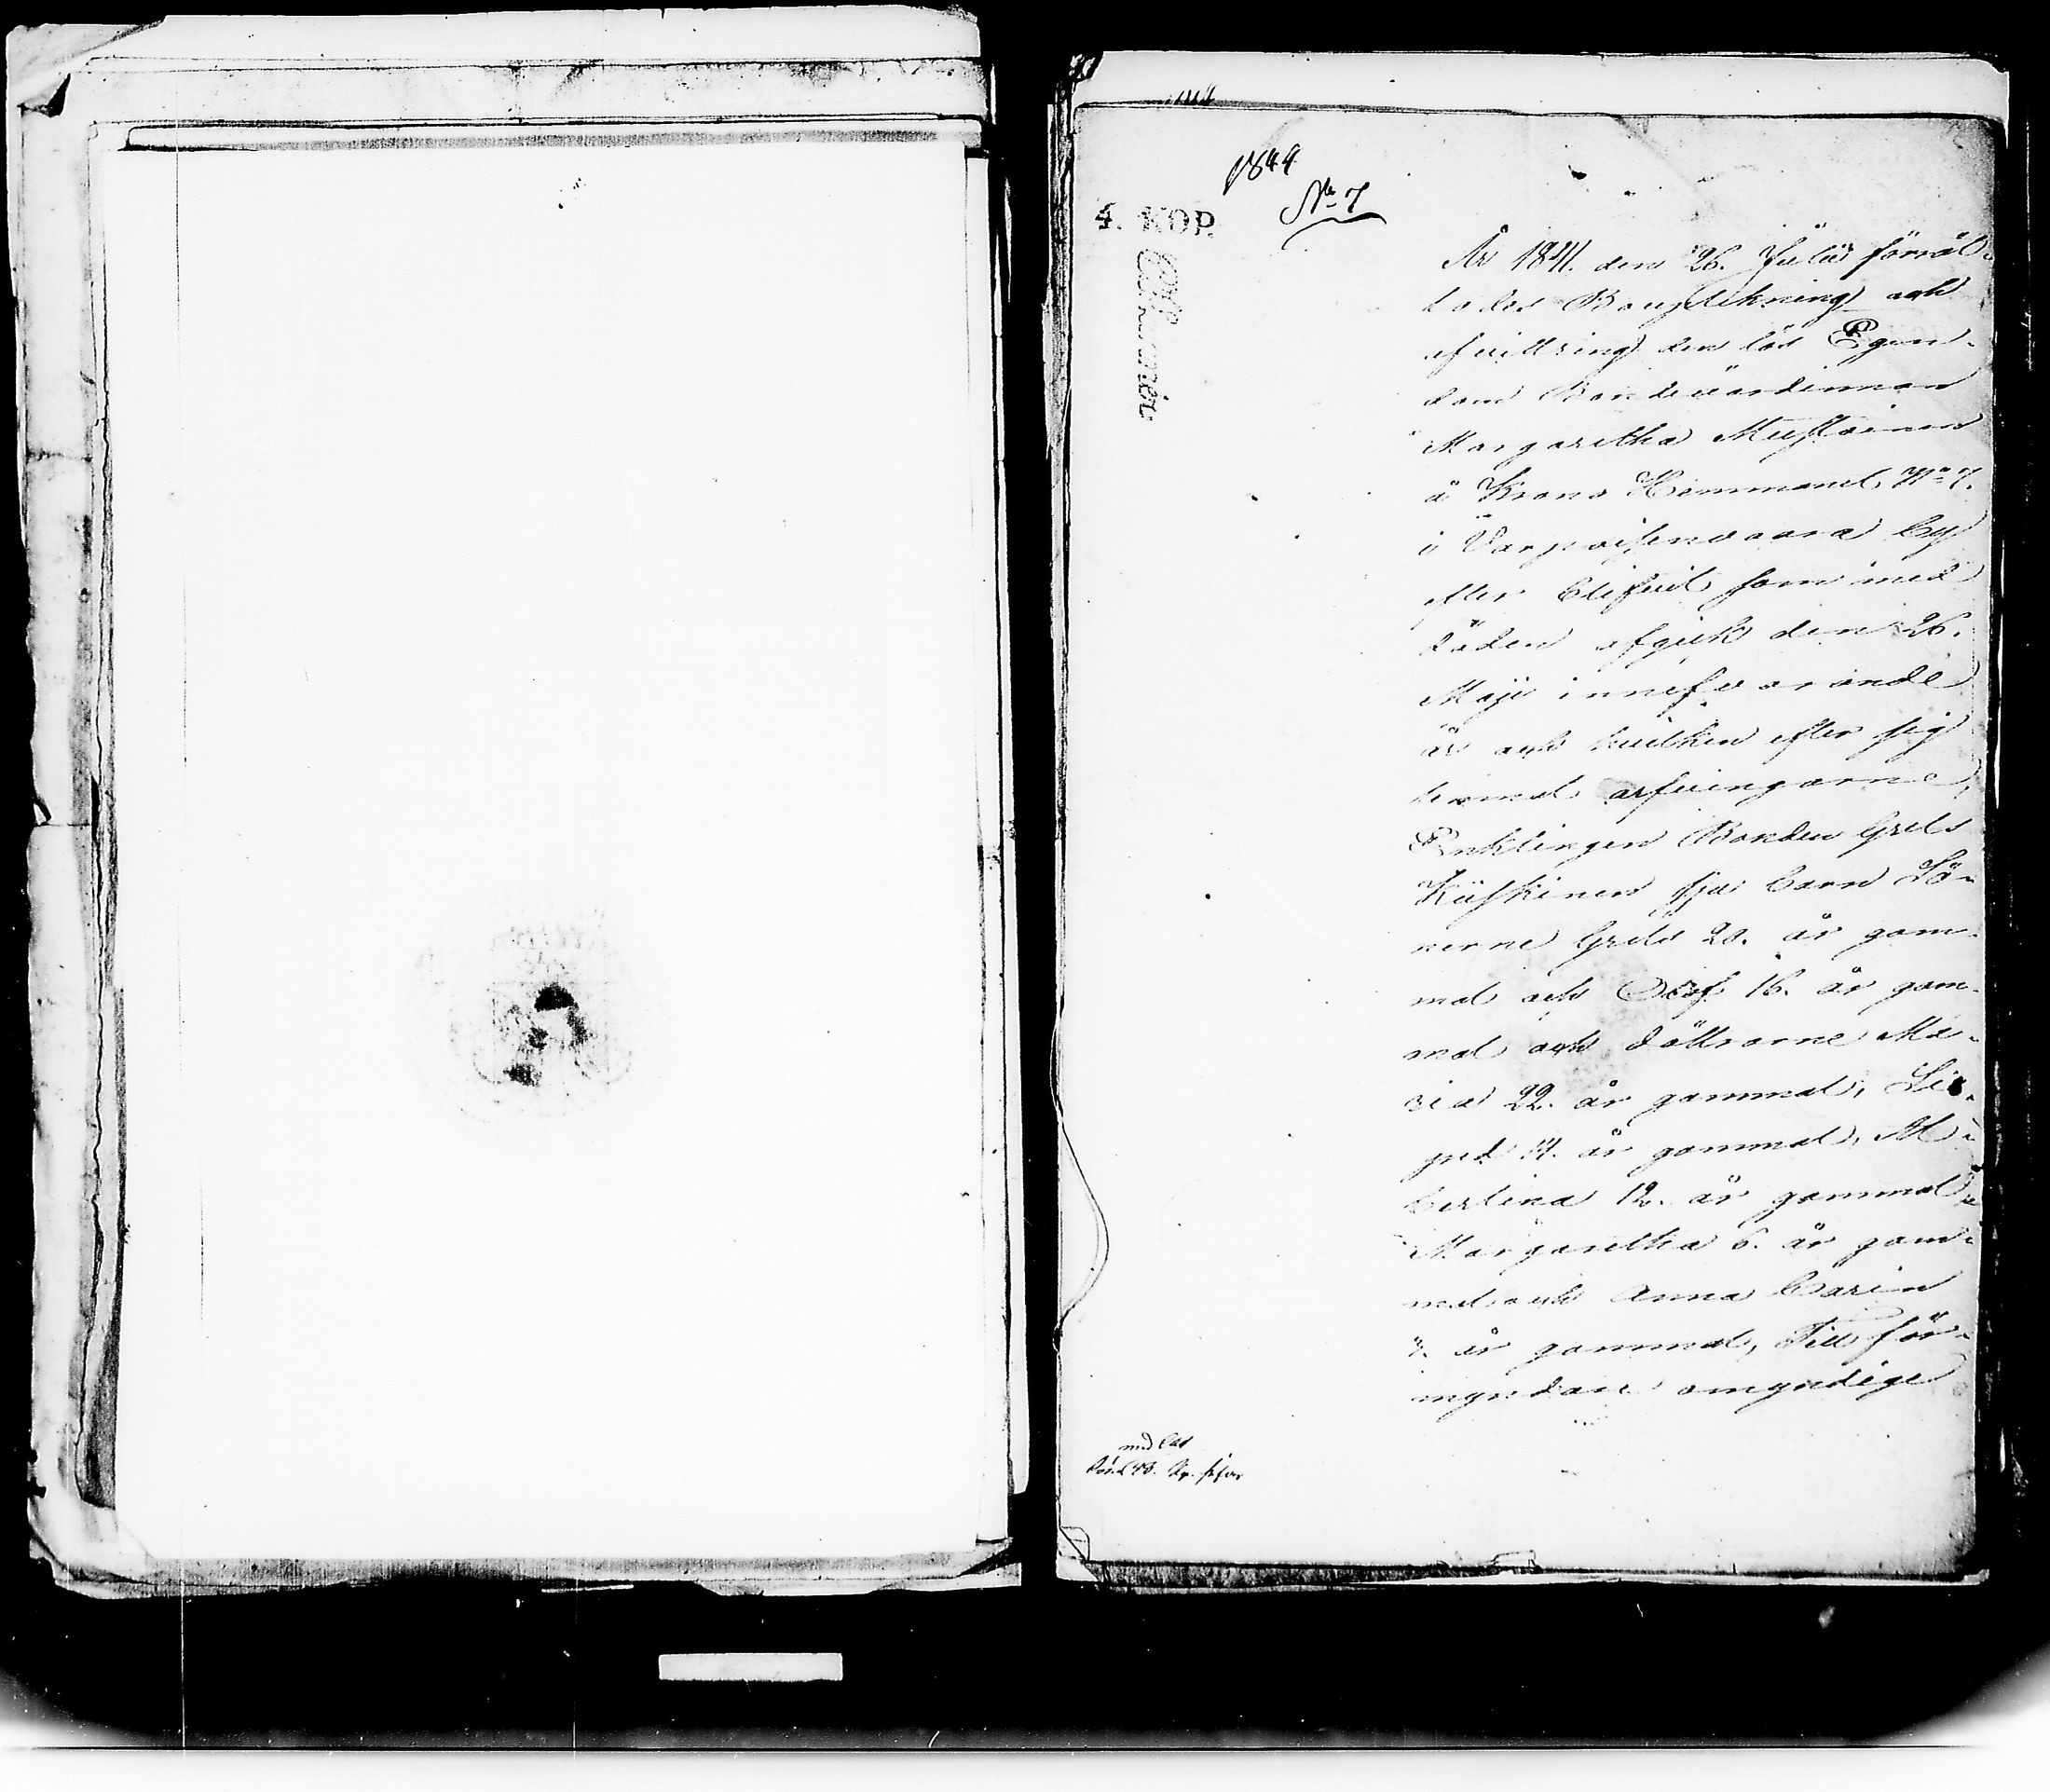 1844
No 7
4. KOP.
År 1841. den 26. Julii förrät-
tades Bouptekning och
afvittring den lös Egen-
dom Bondevärdinnan
Margaretha Mustoinen
å Krono Hemmanet No 7.
i Varpaisenvaara by
efter blifvit som med
döden afgick den 26.
Maji innevarande
år och hvilken efter sig
lemnat arfvingarne,
Enklingen Bonden Grels
Kiiskinen sju barn Sö-
nerne Grels 20. år gam-
mal och Olof 16. år gam-
mal och döttrarne Ma-
ria 22. år gammal, Li-
gred 14. år gammal, Al-
bertina 12. år gammal
Margaretha 6. år gam-
mal och Anna Carin
3. år gammal, Till för-
myndare omyndige